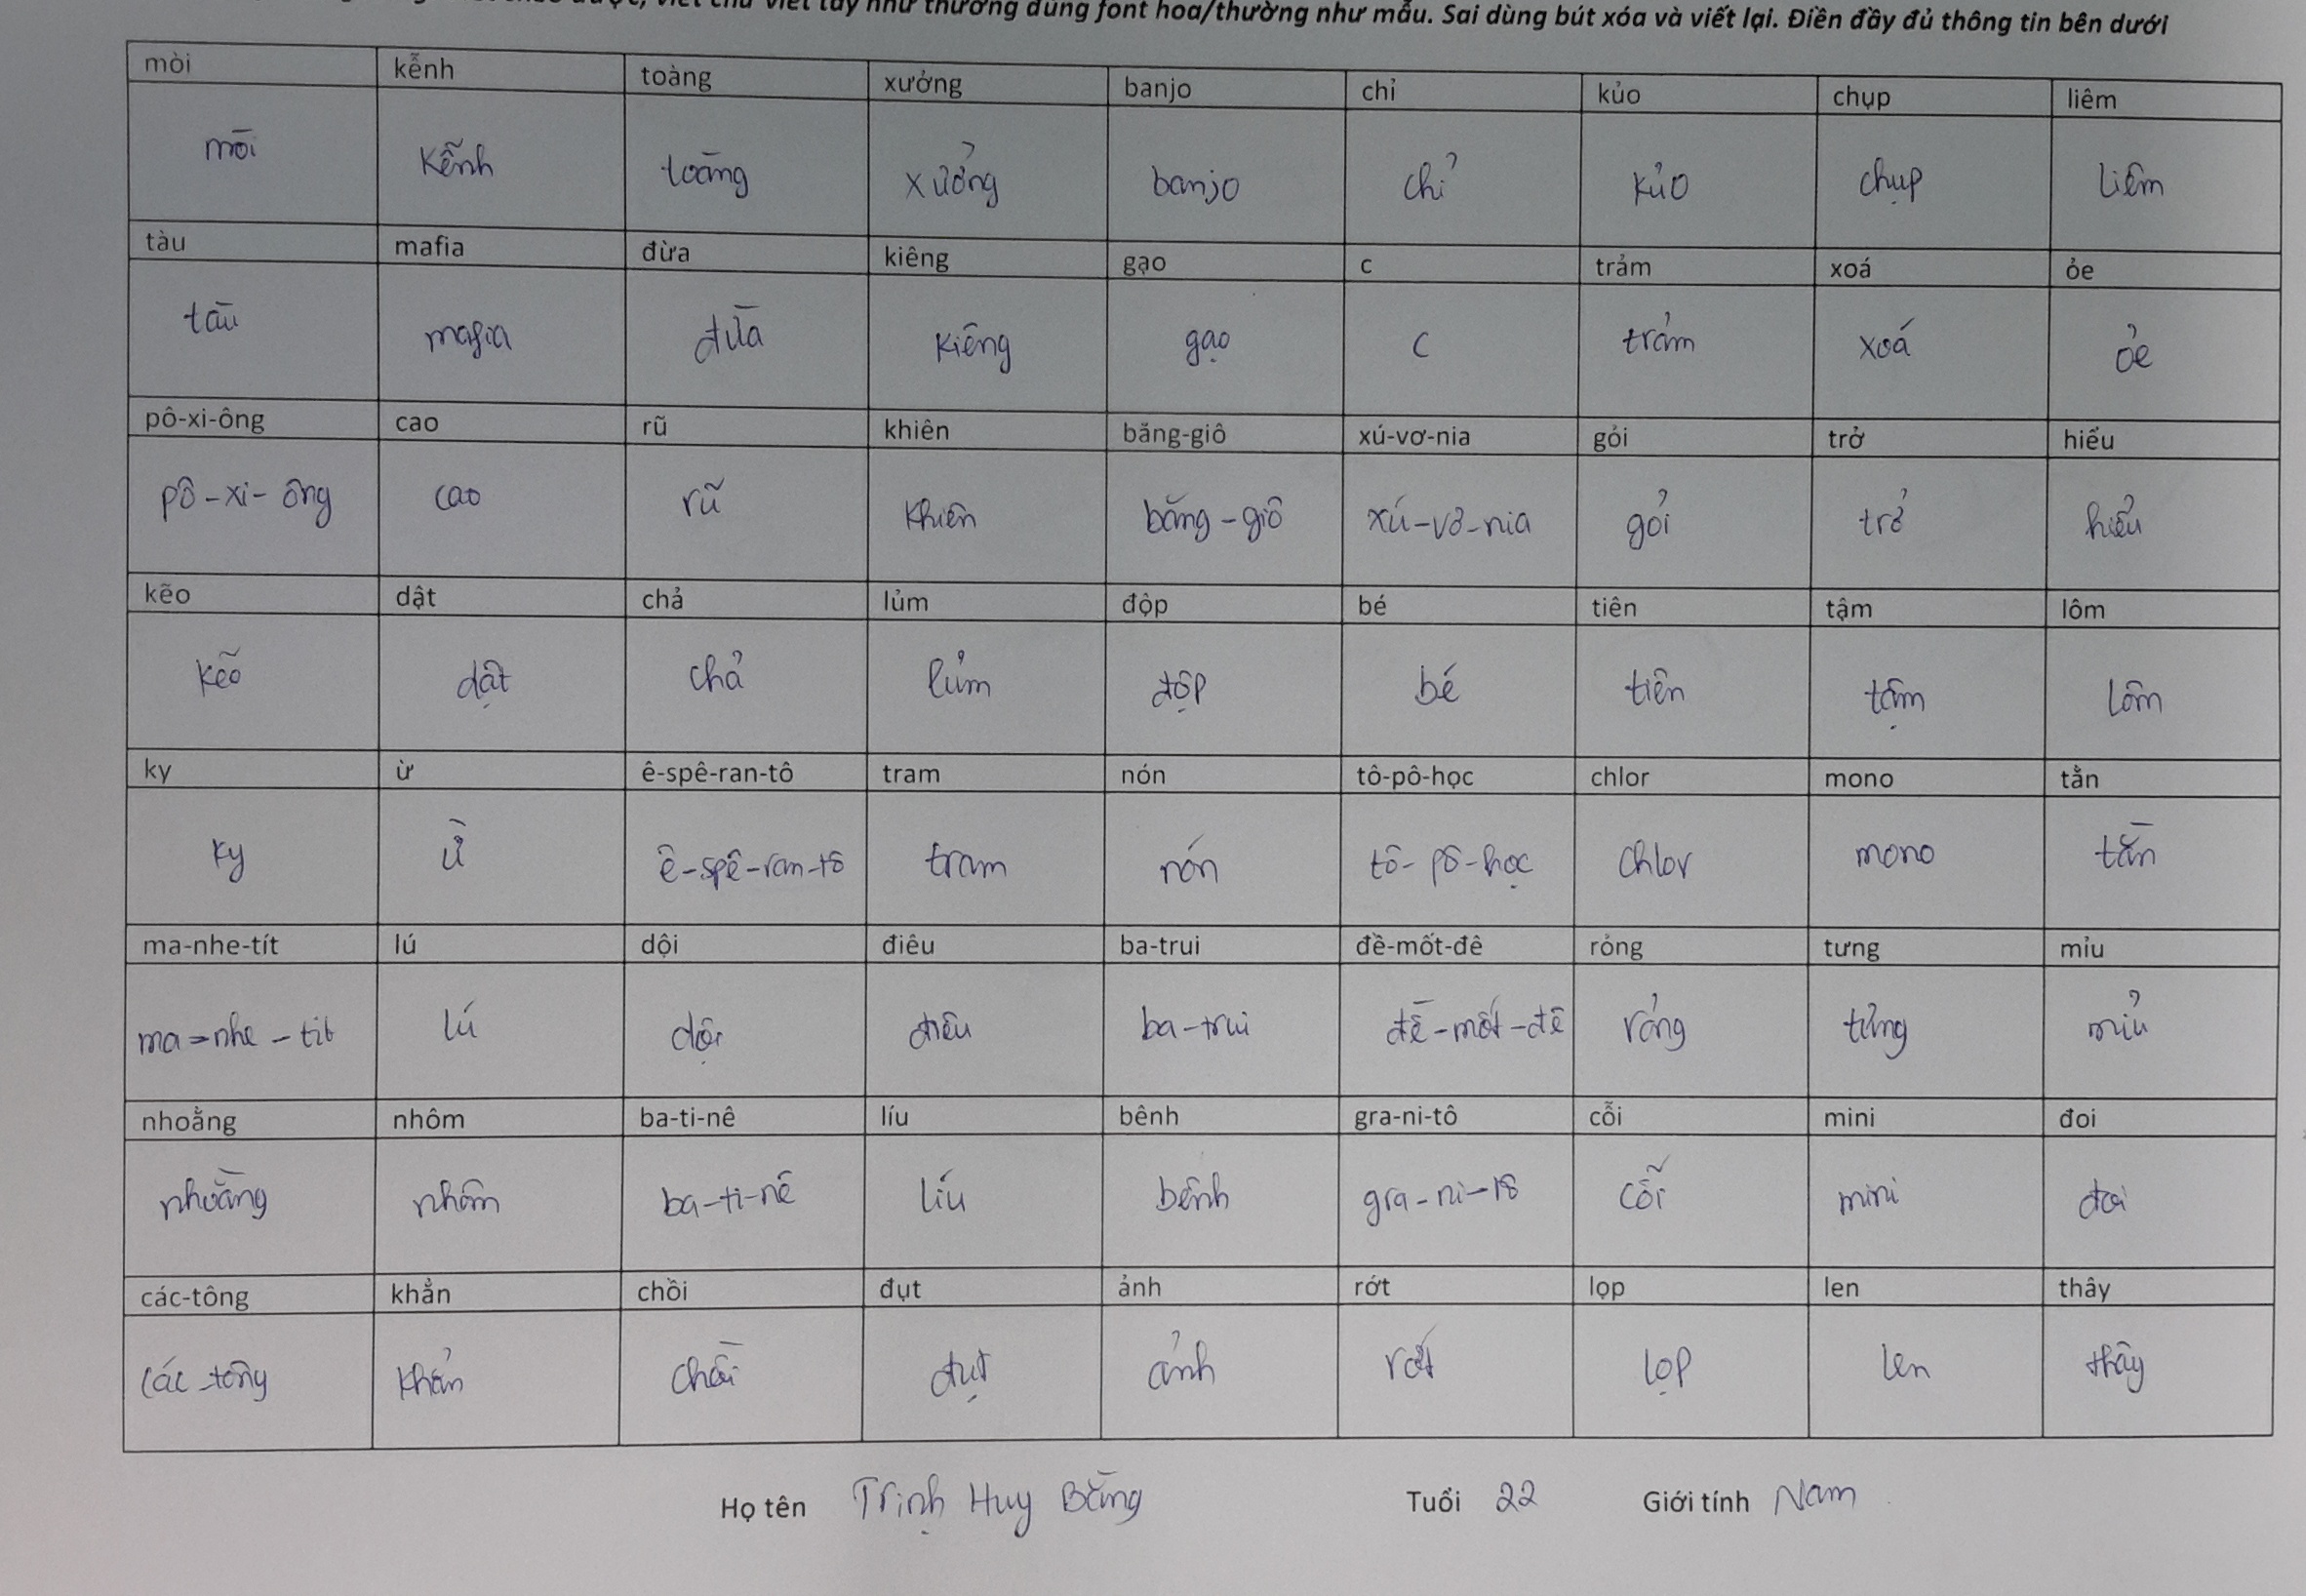 viết chữ viết tay như thường dùng font hoa/thường như mẫu. Sai dùng bút xóa và viết lại. Điền đầy đủ thông tin bên dưới
mòi kễnh toàng xưởng banjo chỉ kủo chụp liêm
mòi kễnh toàng xưởng banjo chỉ kủo chụp liêm
tàu mafia đừa kiêng gạo c trảm xoá ỏe
tàu mafia đừa kiêng gạo c trảm xoá ỏe
pô-xi-ông cao rũ khiên băng-giô xú-vơ-nia gỏi trở hiểu
pô-xi-ông cao rũ khiên băng-giô xú-vơ-nia gỏi trở hiểu
kẽo dật chả lủm độp bé tiên tậm lôm
kẽo dật chả lủm độp bé tiên tậm lôm
ky ừ ê-spê-ran-tô tram nón tô-pô-học chlor mono tằn
ky ừ ê-spê-ran-tô tram nón tô-pô-học chlor mono tằn
ma-nhe-tít lú dội điêu ba-trui đề-mốt-đê rỏng tưng mỉu
ma=nhe-tit lú dội điêu ba-trui đề-mốt-đê rỏng tưng mỉu
nhoằng nhôm ba-ti-nê líu bênh gra-ni-tô cỗi mini đoi
nhoằng nhôm ba-ti-nê líu bênh gra-ni-tô cỗi mini đoi
các-tông khẳn chồi đụt ảnh rớt lọp len thây
các-tông khẳn chồi đụt ảnh rớt lọp len thây
Họ tên Trịnh Huy Bằng Tuổi 22 Giới tính Nam